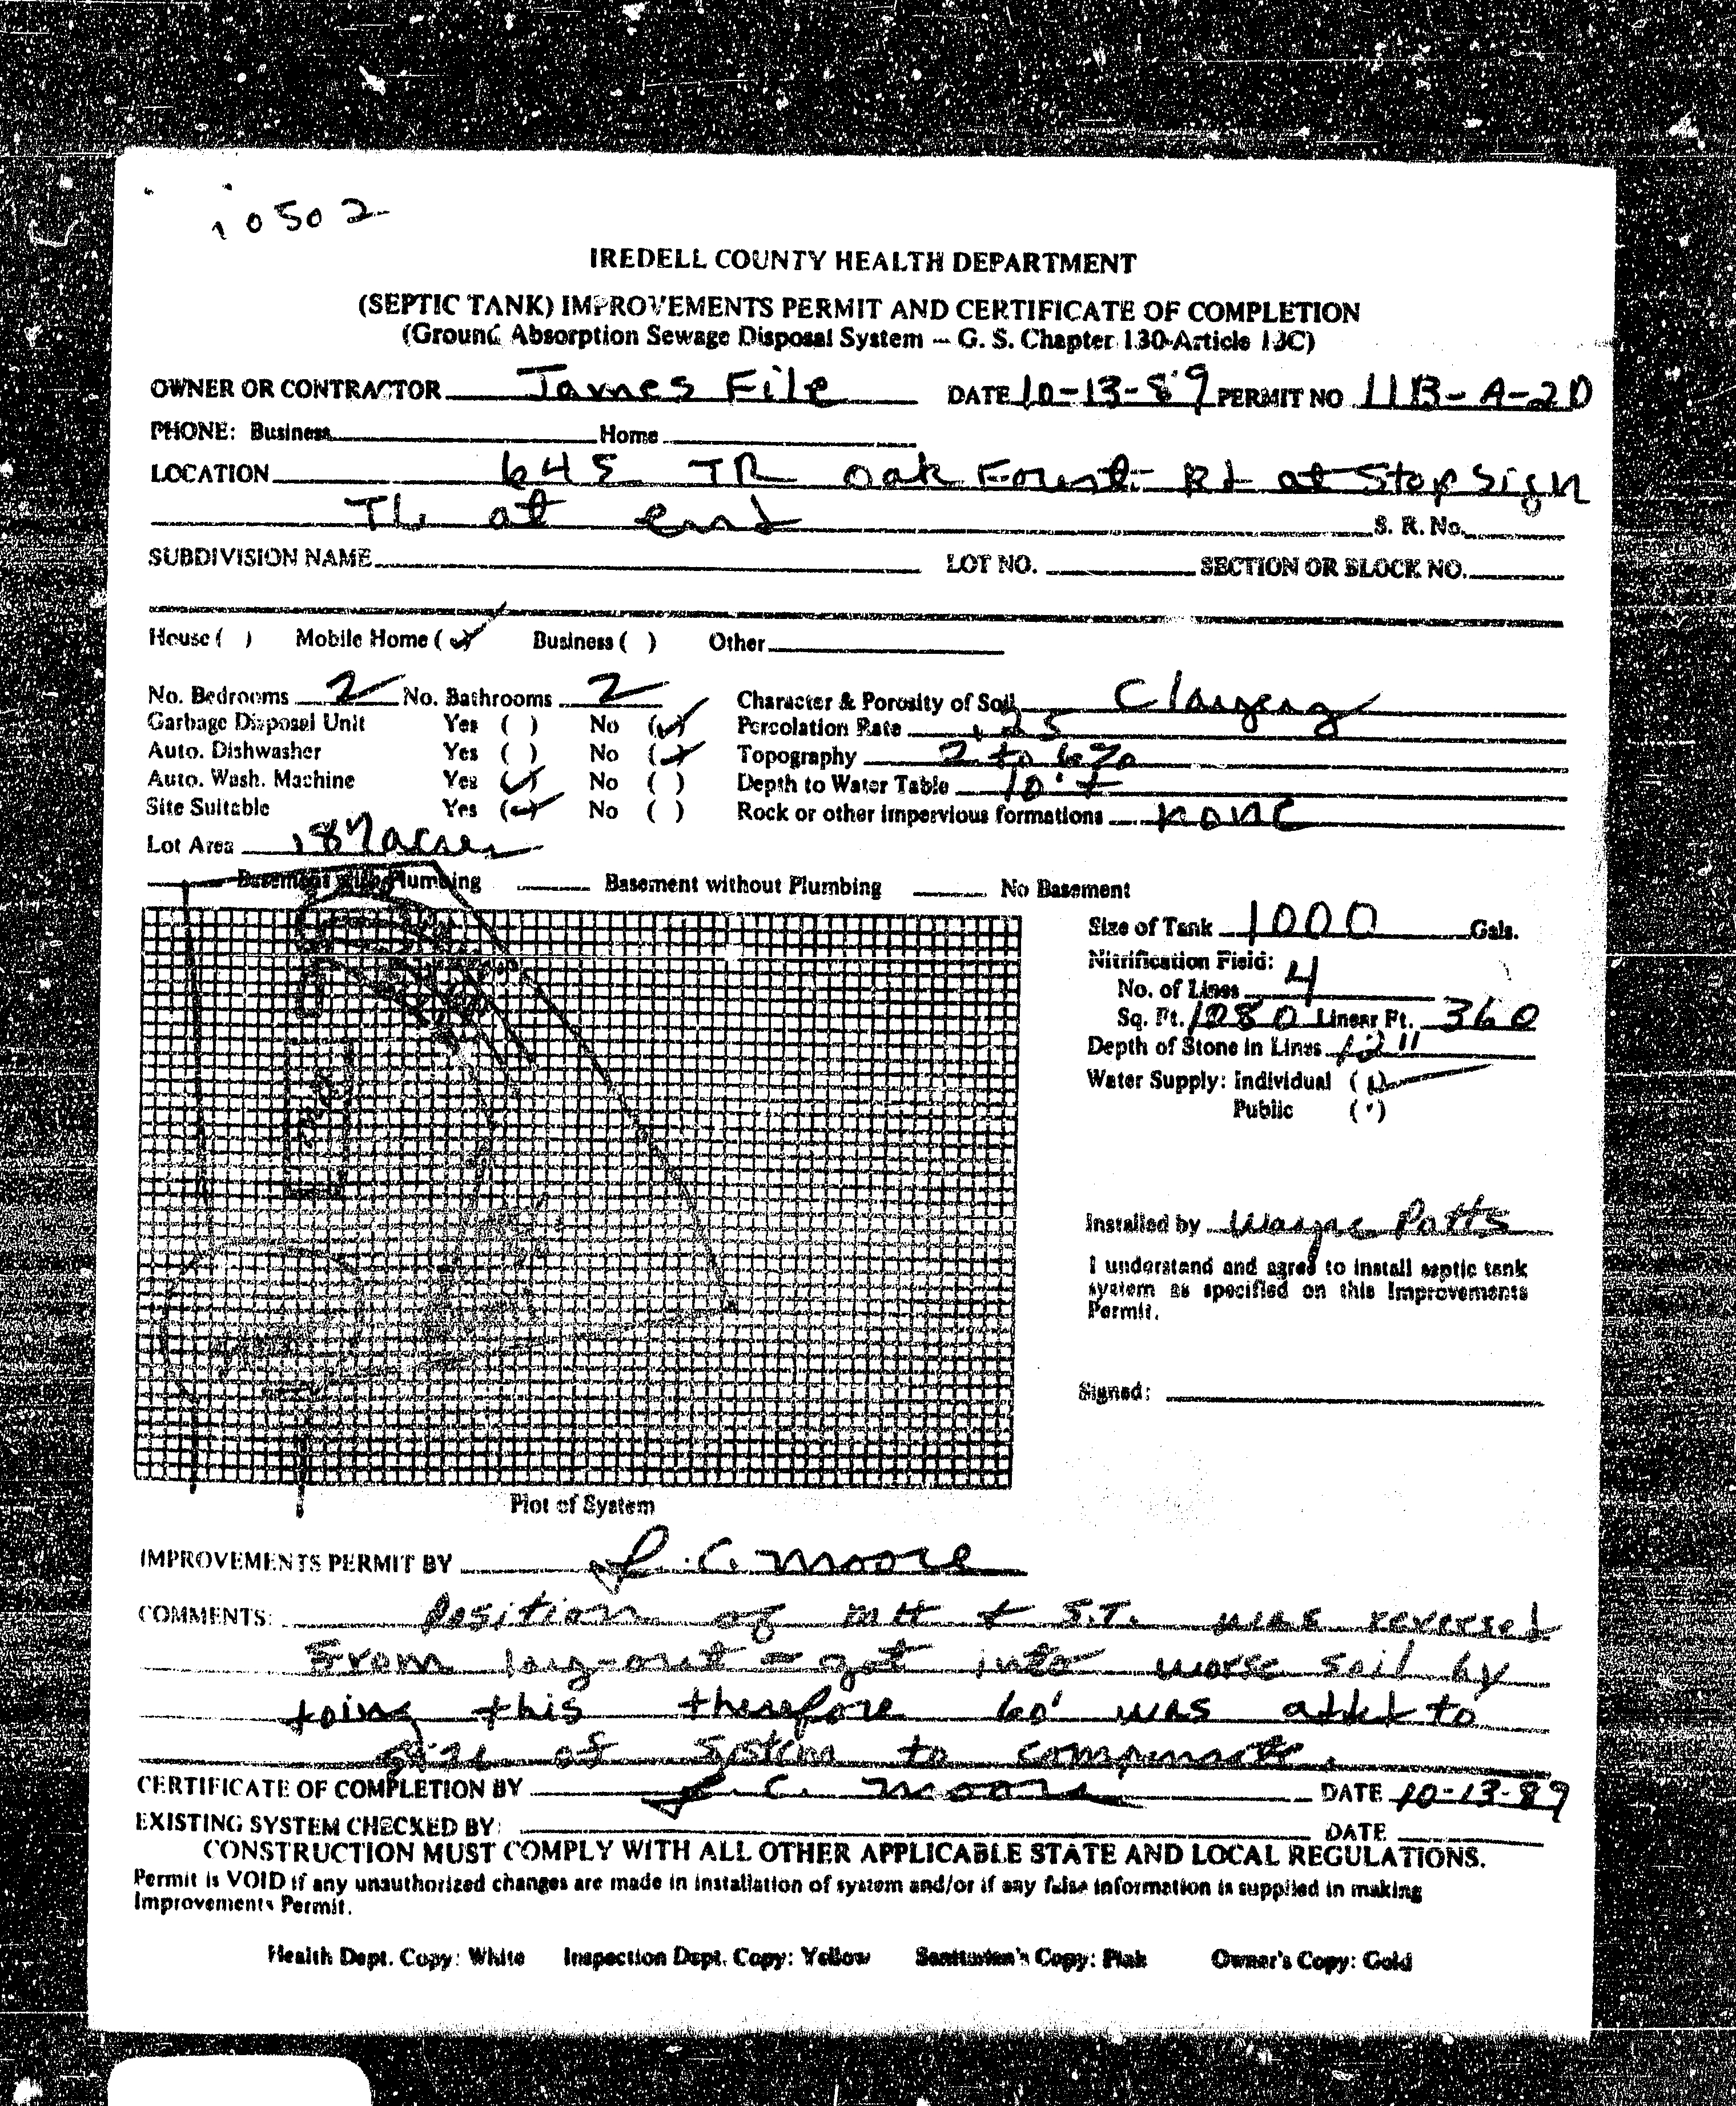 10502
IREDELL COUNTY HEALTH DEPARTMENT
(SEPTIC TANK) IMPROVEMENTS PERMIT AND CERTIFICATE OF COMPLETION
(Ground Absorption Sewage Disposal System -- G. S. Chapter 130-Article 13C)
OWNER OR CONTRACTOR James File DATE 10-13-89 PERMIT NO 11B-A-20
PHONE: Business Home
LOCATION 64E TR Oak Forest Rd at Stop Sign
TL at end S. R. No.
SUBDIVISION NAME LOT NO. SECTION OR BLOCK NO.
House ( ) Mobile Home (✓) Business ( ) Other
No. Bedrooms 2 No. Bathrooms 2 Character & Porosity of Soil Clayey
Garbage Disposal Unit Yes ( ) No (✓) Percolation Rate 25
Auto. Dishwasher Yes ( ) No (✓) Topography 2 to 6%
Auto. Wash. Machine Yes (✓) No ( ) Depth to Water Table 10'+
Site Suitable Yes (✓) No ( ) Rock or other impervious formations none
Lot Area .87 acres
Basement with Plumbing Basement without Plumbing No Basement
Size of Tank 1000 Gals.
Nitrification Field:
No. of Lines 4
Sq. Ft. 1080 Linear Ft. 360
Depth of Stone in Lines 12"
Water Supply: Individual (✓)
Public ( )
Installed by Wayne Potts
I understand and agree to install septic tank
system as specified on this Improvements
Permit.
Signed:
Plot of System
IMPROVEMENTS PERMIT BY L.C. Moore
COMMENTS: Position of MH + S.T. was reversed
From lay-out = got into worse soil by
doing this therefore 60' was added to
size of system to compensate.
CERTIFICATE OF COMPLETION BY L.C. Moore DATE 10-13-89
EXISTING SYSTEM CHECKED BY: DATE
CONSTRUCTION MUST COMPLY WITH ALL OTHER APPLICABLE STATE AND LOCAL REGULATIONS.
Permit is VOID if any unauthorized changes are made in installation of system and/or if any false information is supplied in making
Improvements Permit.
Health Dept. Copy: White Inspection Dept. Copy: Yellow Sanitarian's Copy: Pink Owner's Copy: Gold